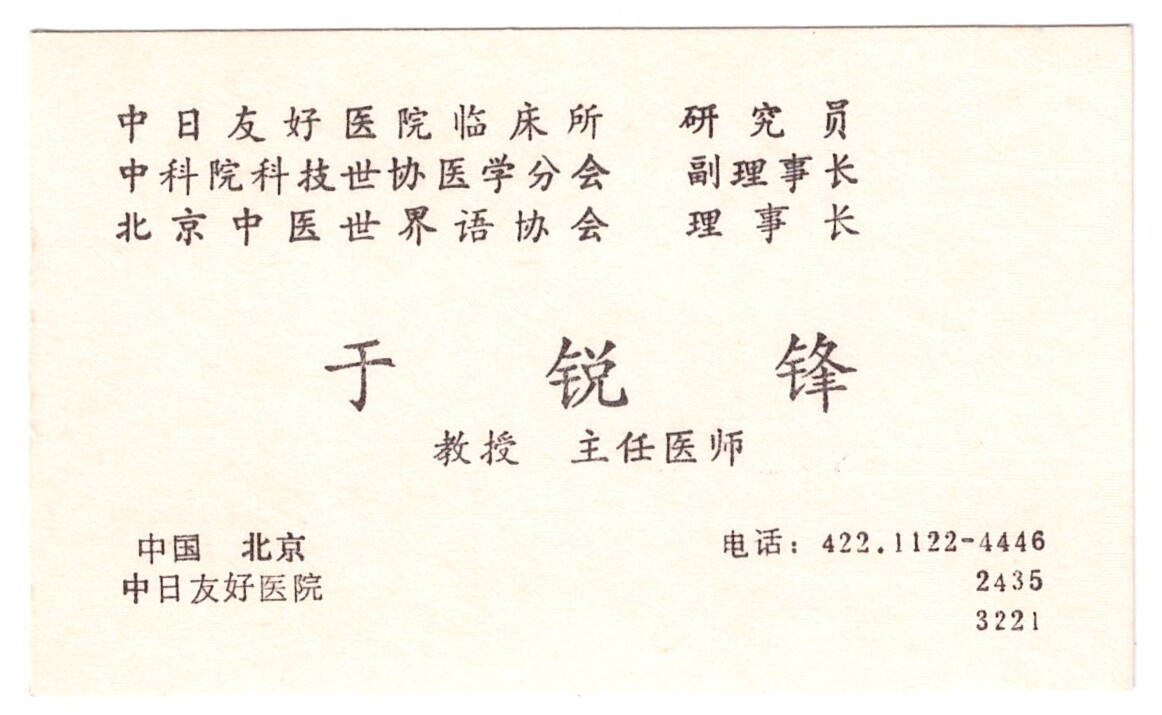 中日友好医院临床所 研究员
中科院科技世协医学分会 副理事长
北京中医世界语协会 理事长
于锐锋
教授 主任医师
中国 北京
中日友好医院
电话：422.1122-4446
2435
3221